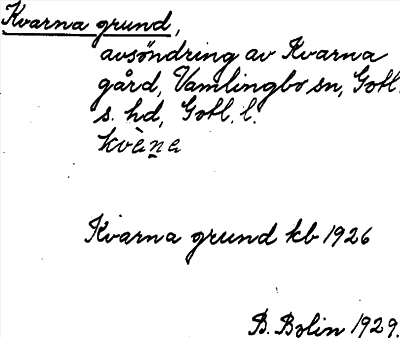 Kvarna grund,
avsöndring av Kvarna
gård, Vamlingbo sn, Gotl.
s. hd, Gotl. l.
kvàṉa
Kvarna grund kb 1926
B. Bolin 1929.